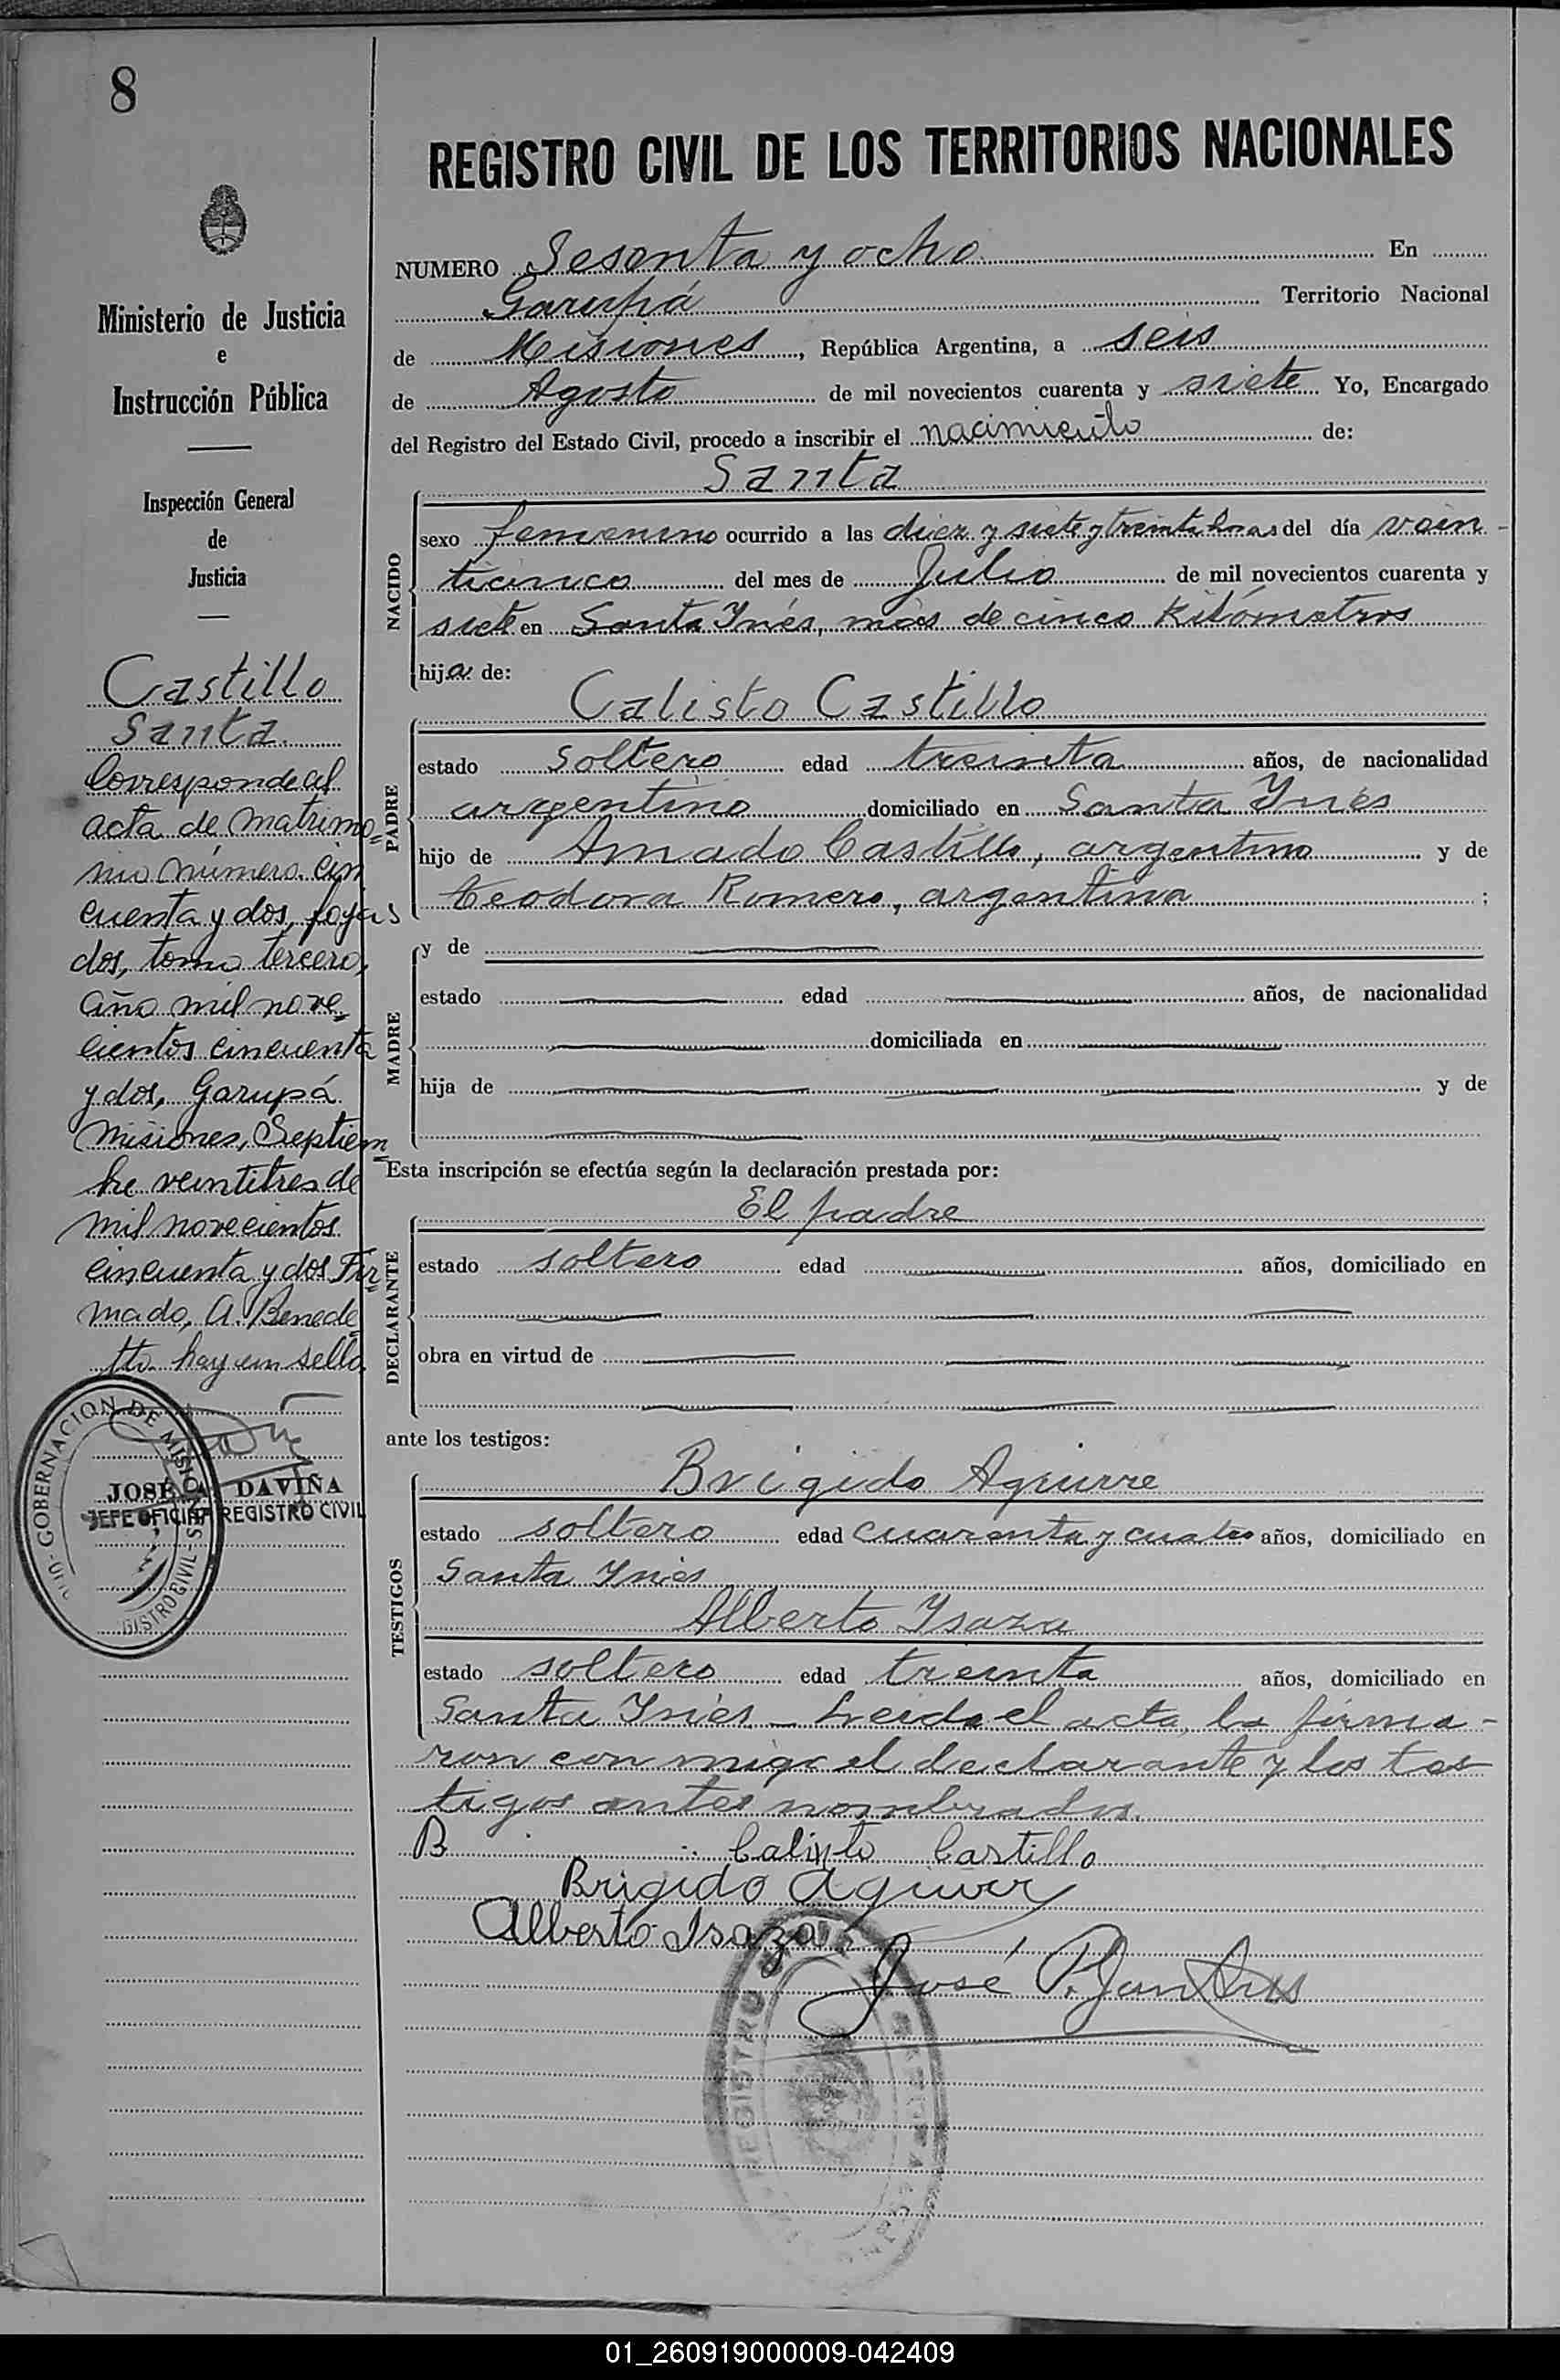 8
REGISTRO CIVIL DE LOS TERRITORIOS NACIONALES
Ministerio de Justicia
e
Instrucción Pública
Inspección General
de
Justicia
Castillo
Santa
Corresponde al
acta de matrimo=
nio número cin
cuenta y dos, fojas
dos, tomo tercero,
año mil nove=
cientos cincuenta
y dos, Garupá
Misiones, Septiem=
bre veintitres de
mil novecientos
cincuenta y dos Fir=
mado, A. Benede
tto. hay un sello
GOBERNACION DE MISIONES
REGISTRO CIVIL
JOSÉ A. DAVIÑA
JEFE OFICINA REGISTRO CIVIL
NUMERO Sesenta y ocho En
Garupá Territorio Nacional
de Misiones, República Argentina, a seis
de Agosto de mil novecientos cuarenta y siete Yo, Encargado
del Registro del Estado Civil, procedo a inscribir el nacimiento de:
Santa
NACIDO
sexo femenino ocurrido a las diez y siete y treinta horas del día vein-
ticinco del mes de Julio de mil novecientos cuarenta y
siete en Santa Ynés, más de cinco kilómetros
hija de:
Calisto Castillo
PADRE
estado soltero edad treinta años, de nacionalidad
argentino domiciliado en Santa Ynés
hijo de Amado Castillo, argentino y de
Teodora Romero, argentina ;
MADRE
y de
estado edad años, de nacionalidad
domiciliada en
hija de y de
Esta inscripción se efectúa según la declaración prestada por:
El padre
DECLARANTE
estado soltero edad años, domiciliado en
obra en virtud de
ante los testigos:
Brigido Aguirre
TESTIGOS
estado soltero edad cuarenta y cuatro años, domiciliado en
Santa Ynés
Alberto Ysaza
estado soltero edad treinta años, domiciliado en
Santa Ynés - Leida el acta, la firma-
ron conmigo el declarante y los tes
tigos antes nombrados.
B Calixto Castillo
Brigido Aguirre
Alberto Isaza
José P.
REGISTRO
01_260919000009-042409